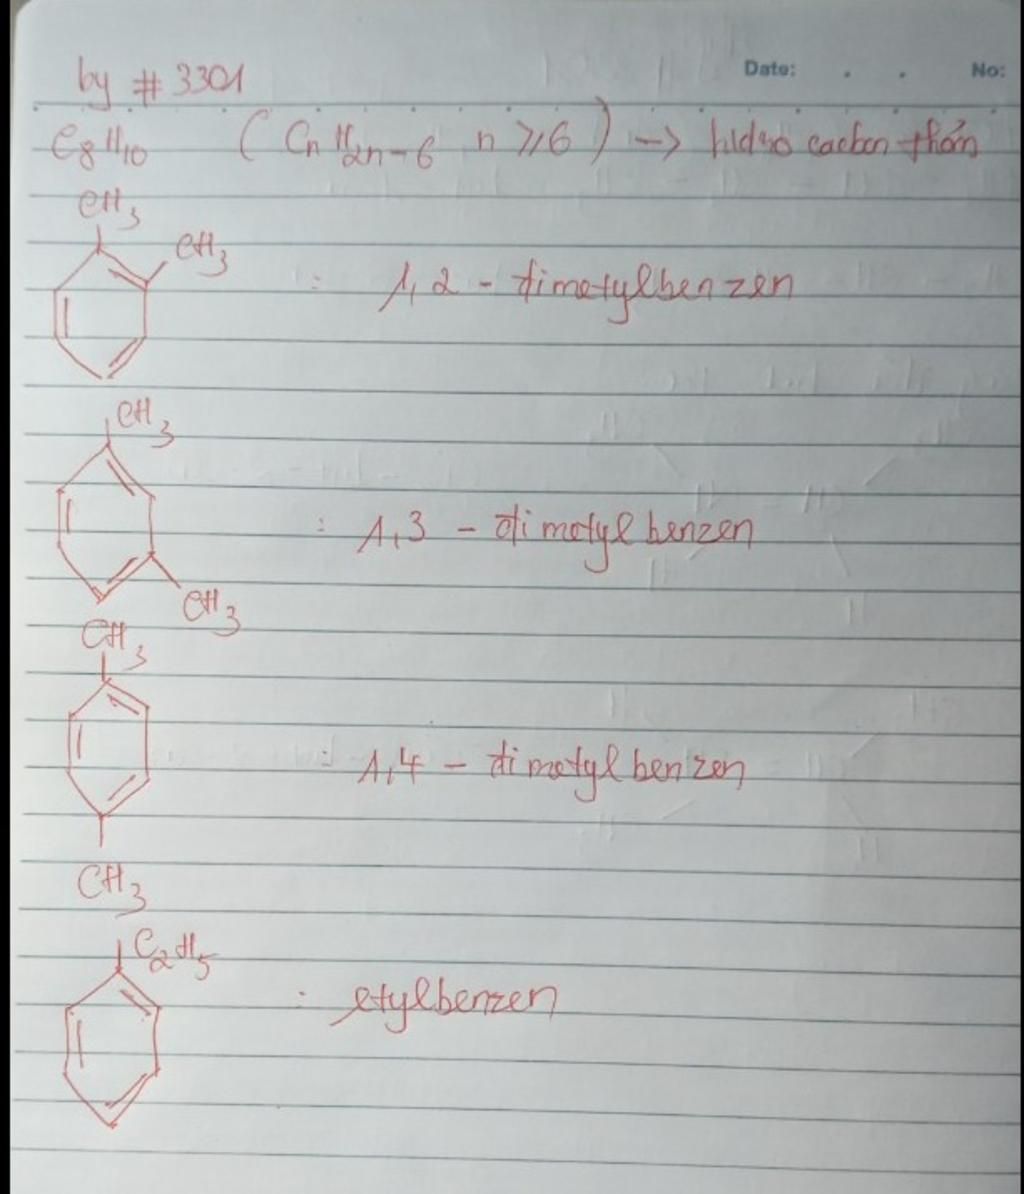 by # 3301
Date: . . No:
C8H10 ( CnH2n-6 n ≥ 6 ) -> hidro cacbon thơm
CH3
CH3
: 1,2 - đimetylbenzen
CH3
: 1,3 - đimetylbenzen
CH3
CH3
: 1,4 - đimetylbenzen
CH3
C2H5
: etylbenzen